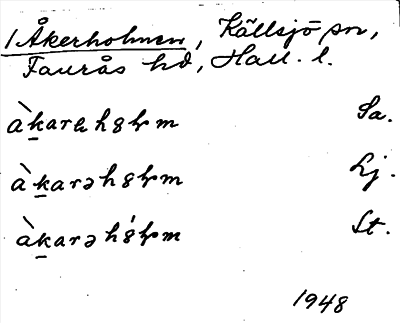 1 Åkerholmen, Källsjö sn,
Faurås hd, Hall. l.
àka̱rəhȣḷm Sa.
àka̱rəhȣḷm Lj.
àka̱rəhȣ́ḷm St.
1948